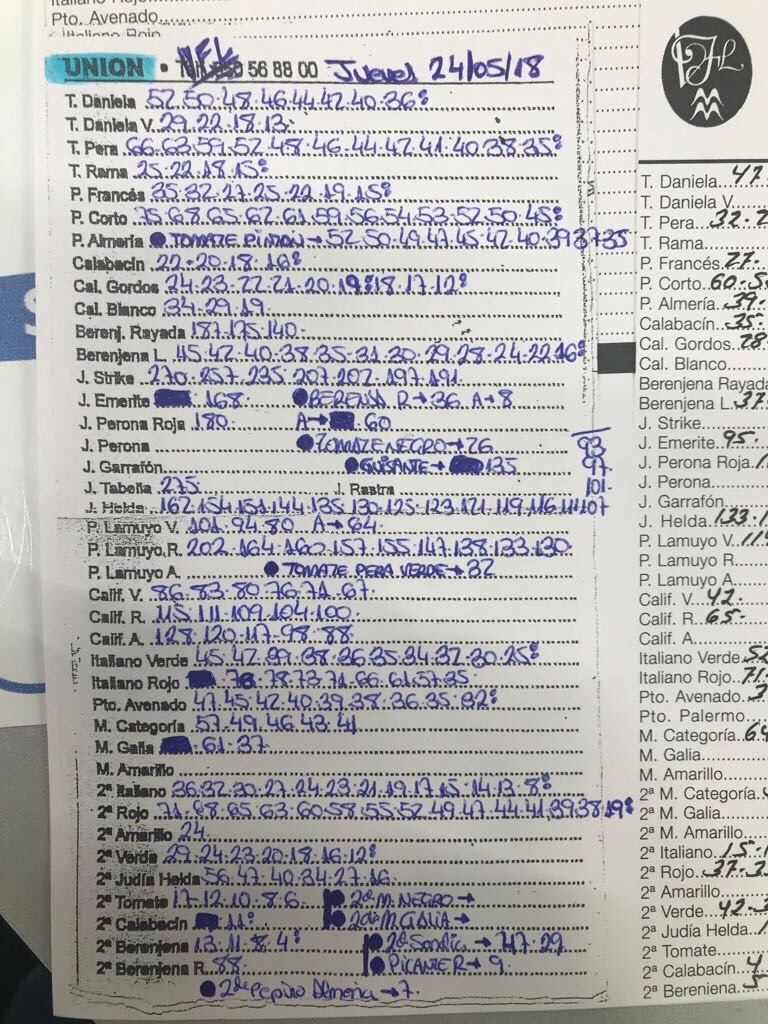 Pto. Avenado
UNION • 56 88 00 Jueves 24/05/18
T. Daniela 52.50.48.46.44.42.40.36º
T. Daniela V. 29.22.18.13.
T. Pera 66.63.59.52.48.46.44.42.41.40.38.35º
T. Rama 25.22.18.15º
P. Francés 35.32.27.25.22.19.15º
P. Corto 75.68.65.62.61.59.56.54.53.52.50.45º
P. Almería ● TOMATE PINTON → 52.50.49.47.45.42.40.39 37.35
Calabacín 22.20.18.16º
Cal. Gordos 24.23.22.21.20.19º18.17.12º
Cal. Blanco 34.29.19.
Berenj. Rayada 187.175.140.
Berenjena L. 45.42.40.38.35.31.30.29.28.24.22.16º
J. Strike 270.257.235.207.202.197.191.
J. Emerite 168. ● BERENJ R → 36 A → 8
J. Perona Roja 180. A → 60
J. Perona ● TOMATE NEGRO → 26 93
J. Garrafón ● GUISANTE → 135 97
J. Tabella 275 J. Rastra 101
J. Helda 162.154.151.144.135.130.125.123.121.119.116.111 107
P. Lamuyo V. 101.94.80 A → 64
P. Lamuyo R. 202.164.160.157.155.147.138.133.130
P. Lamuyo A. ● TOMATE PERA VERDE → 32
Calif. V. 86.83.80.76.71.67.
Calif. R. 115.111.109.104.100.
Calif. A. 128.120.117.98.88
Italiano Verde 45.42.39.38.36.35.34.32.30.25º
Italiano Rojo 78.78.73.71.66.61.57.35
Pto. Avenado 47.45.42.40.39.38.36.35.32º
M. Categoría 57.49.46.43.41
M. Galia 61.37
M. Amarillo
2ª Italiano 36.32.30.27.24.23.21.19.17.15.14.13.8º
2ª Rojo 71.68.65.63.60.58.55.52.49.47.44.41.39.38.19º
2ª Amarillo 24
2ª Verde 29.24.23.20.18.16.12º
2ª Judía Helda 56.47.40.34.27.16
2ª Tomate 17.12.10.8.6 ● 2ª M. NEGRO →
2ª Calabacín 11º ● 2ª M GALIA →
2ª Berenjena 13.11.8.4º ● 2ª Sandia → 47.29
2ª Berenjena R. 88 ● PICANTE R → 9
● 2ª Pepino Almeria → 7
T. Daniela 47.
T. Daniela V.
T. Pera 32.2
T. Rama
P. Francés 27.
P. Corto 60.5
P. Almería 39.
Calabacín 35.
Cal. Gordos 28
Cal. Blanco
Berenjena Rayada
Berenjena L. 37
J. Strike
J. Emerite 95.
J. Perona Roja
J. Perona
J. Garrafón
J. Helda 133.1
P. Lamuyo V. 11
P. Lamuyo R.
P. Lamuyo A.
Calif. V. 42.
Calif. R. 65.
Calif. A.
Italiano Verde 52
Italiano Rojo 71.
Pto. Avenado
Pto. Palermo
M. Categoría 64
M. Galia
M. Amarillo
2ª M. Categoría
2ª M. Galia
2ª M. Amarillo
2ª Italiano 15.1
2ª Rojo 37.3
2ª Amarillo
2ª Verde 42.3
2ª Judía Helda
2ª Tomate
2ª Calabacín 4
2ª Berenjena 5